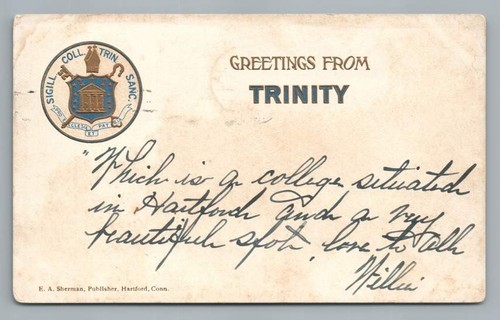 SIGILL. COLL. TRIN. SANC.
GREETINGS FROM
TRINITY
"Which is a college situated
in Hartford and a very
beautiful spot, love to all
Willie
E. A. Sherman, Publisher, Hartford, Conn.